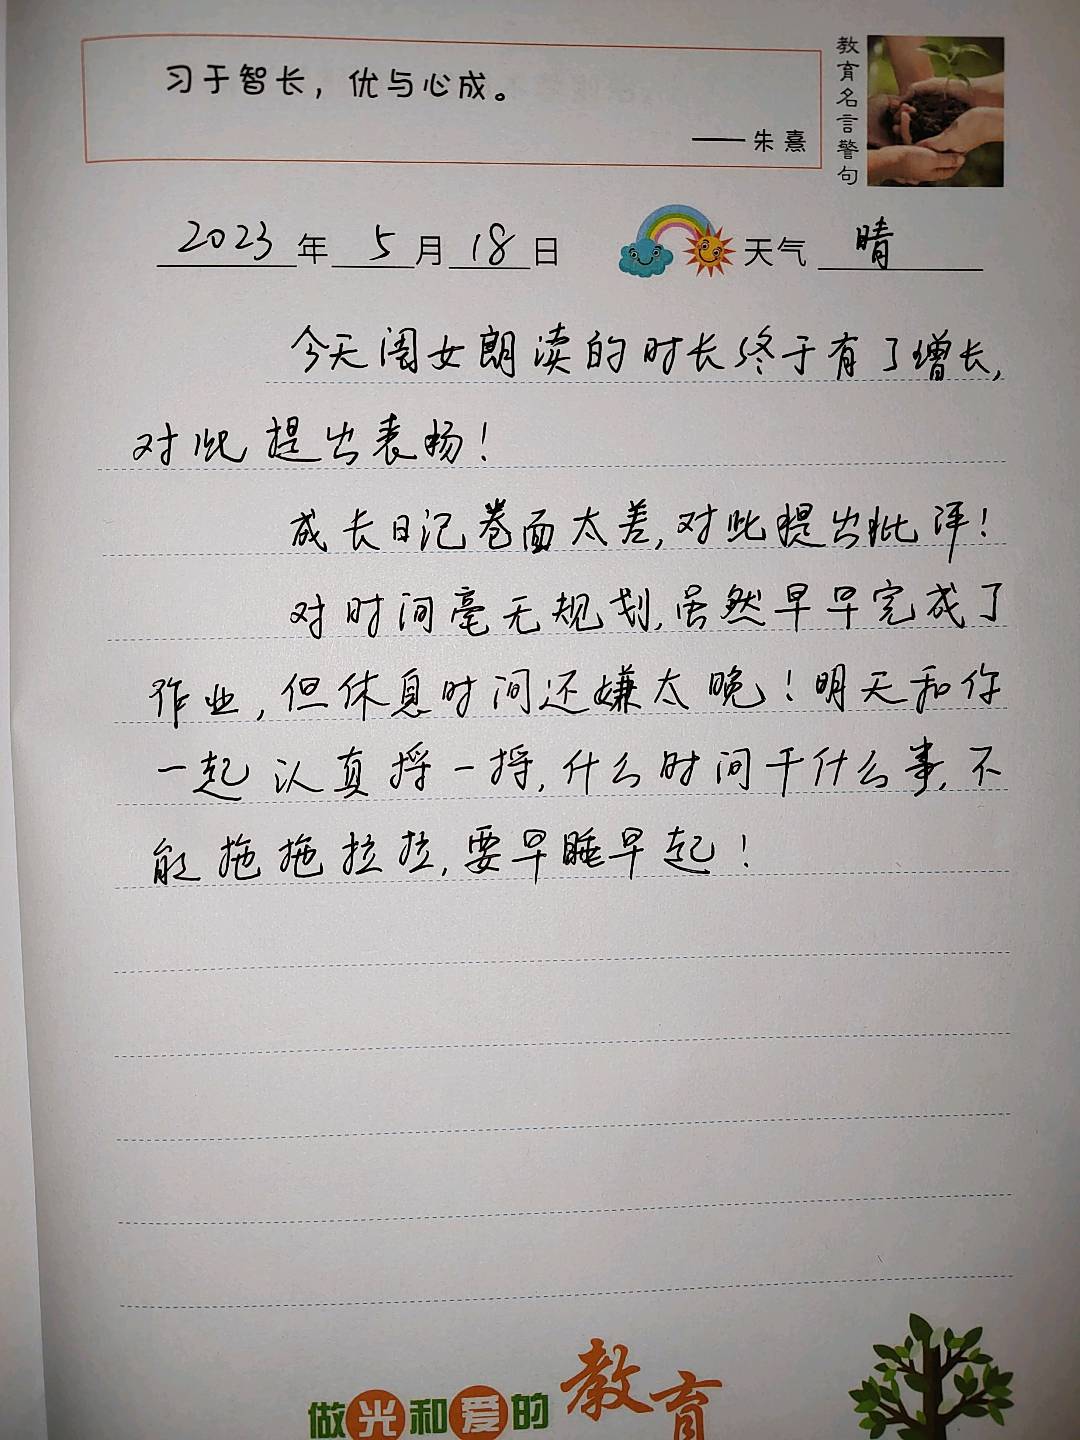 习于智长，优与心成。
——朱熹
教育名言警句
2023年5月18日 天气 晴
今天闺女朗读的时长终于有了增长，
对此提出表扬！
成长日记卷面太差，对此提出批评！
对时间毫无规划，虽然早早完成了
作业，但休息时间还嫌太晚！明天和你
一起认真捋一捋，什么时间干什么事，不
能拖拖拉拉，要早睡早起！
做光和爱的教育